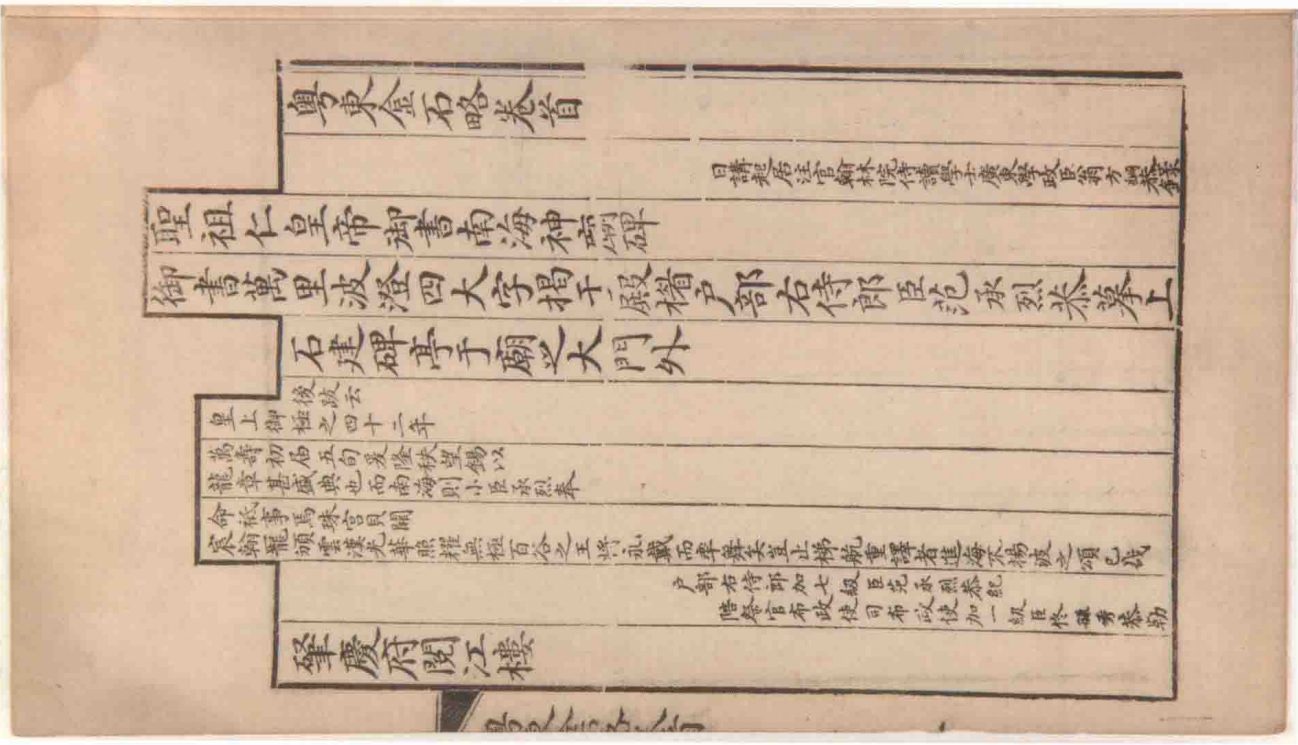 粵東金石略卷首
日講起居注官翰林院侍讀學士廣東學政臣翁方綱恭錄
聖祖仁皇帝御書南海神廟碑
御書萬里波澄四大字揭于殿楣戶部右侍郎臣范承烈恭摹上
石建碑亭于廟之大門外
後跋云
皇上御極之四十二年
萬壽初屆五旬爰隆秩望錫以
龍章甚盛典也而南海則小臣承烈奉
命祇事焉珠宮貝闕
宸翰寵頒雲漢光華照耀無極百谷之王將永戴而率舞矣豈止梯航重譯者進海不揚波之頌已哉
戶部右侍郎加七級臣范承烈恭紀
陪祭官布政使司布政使加一級臣佟毓秀恭勒
肇慶府閱江樓